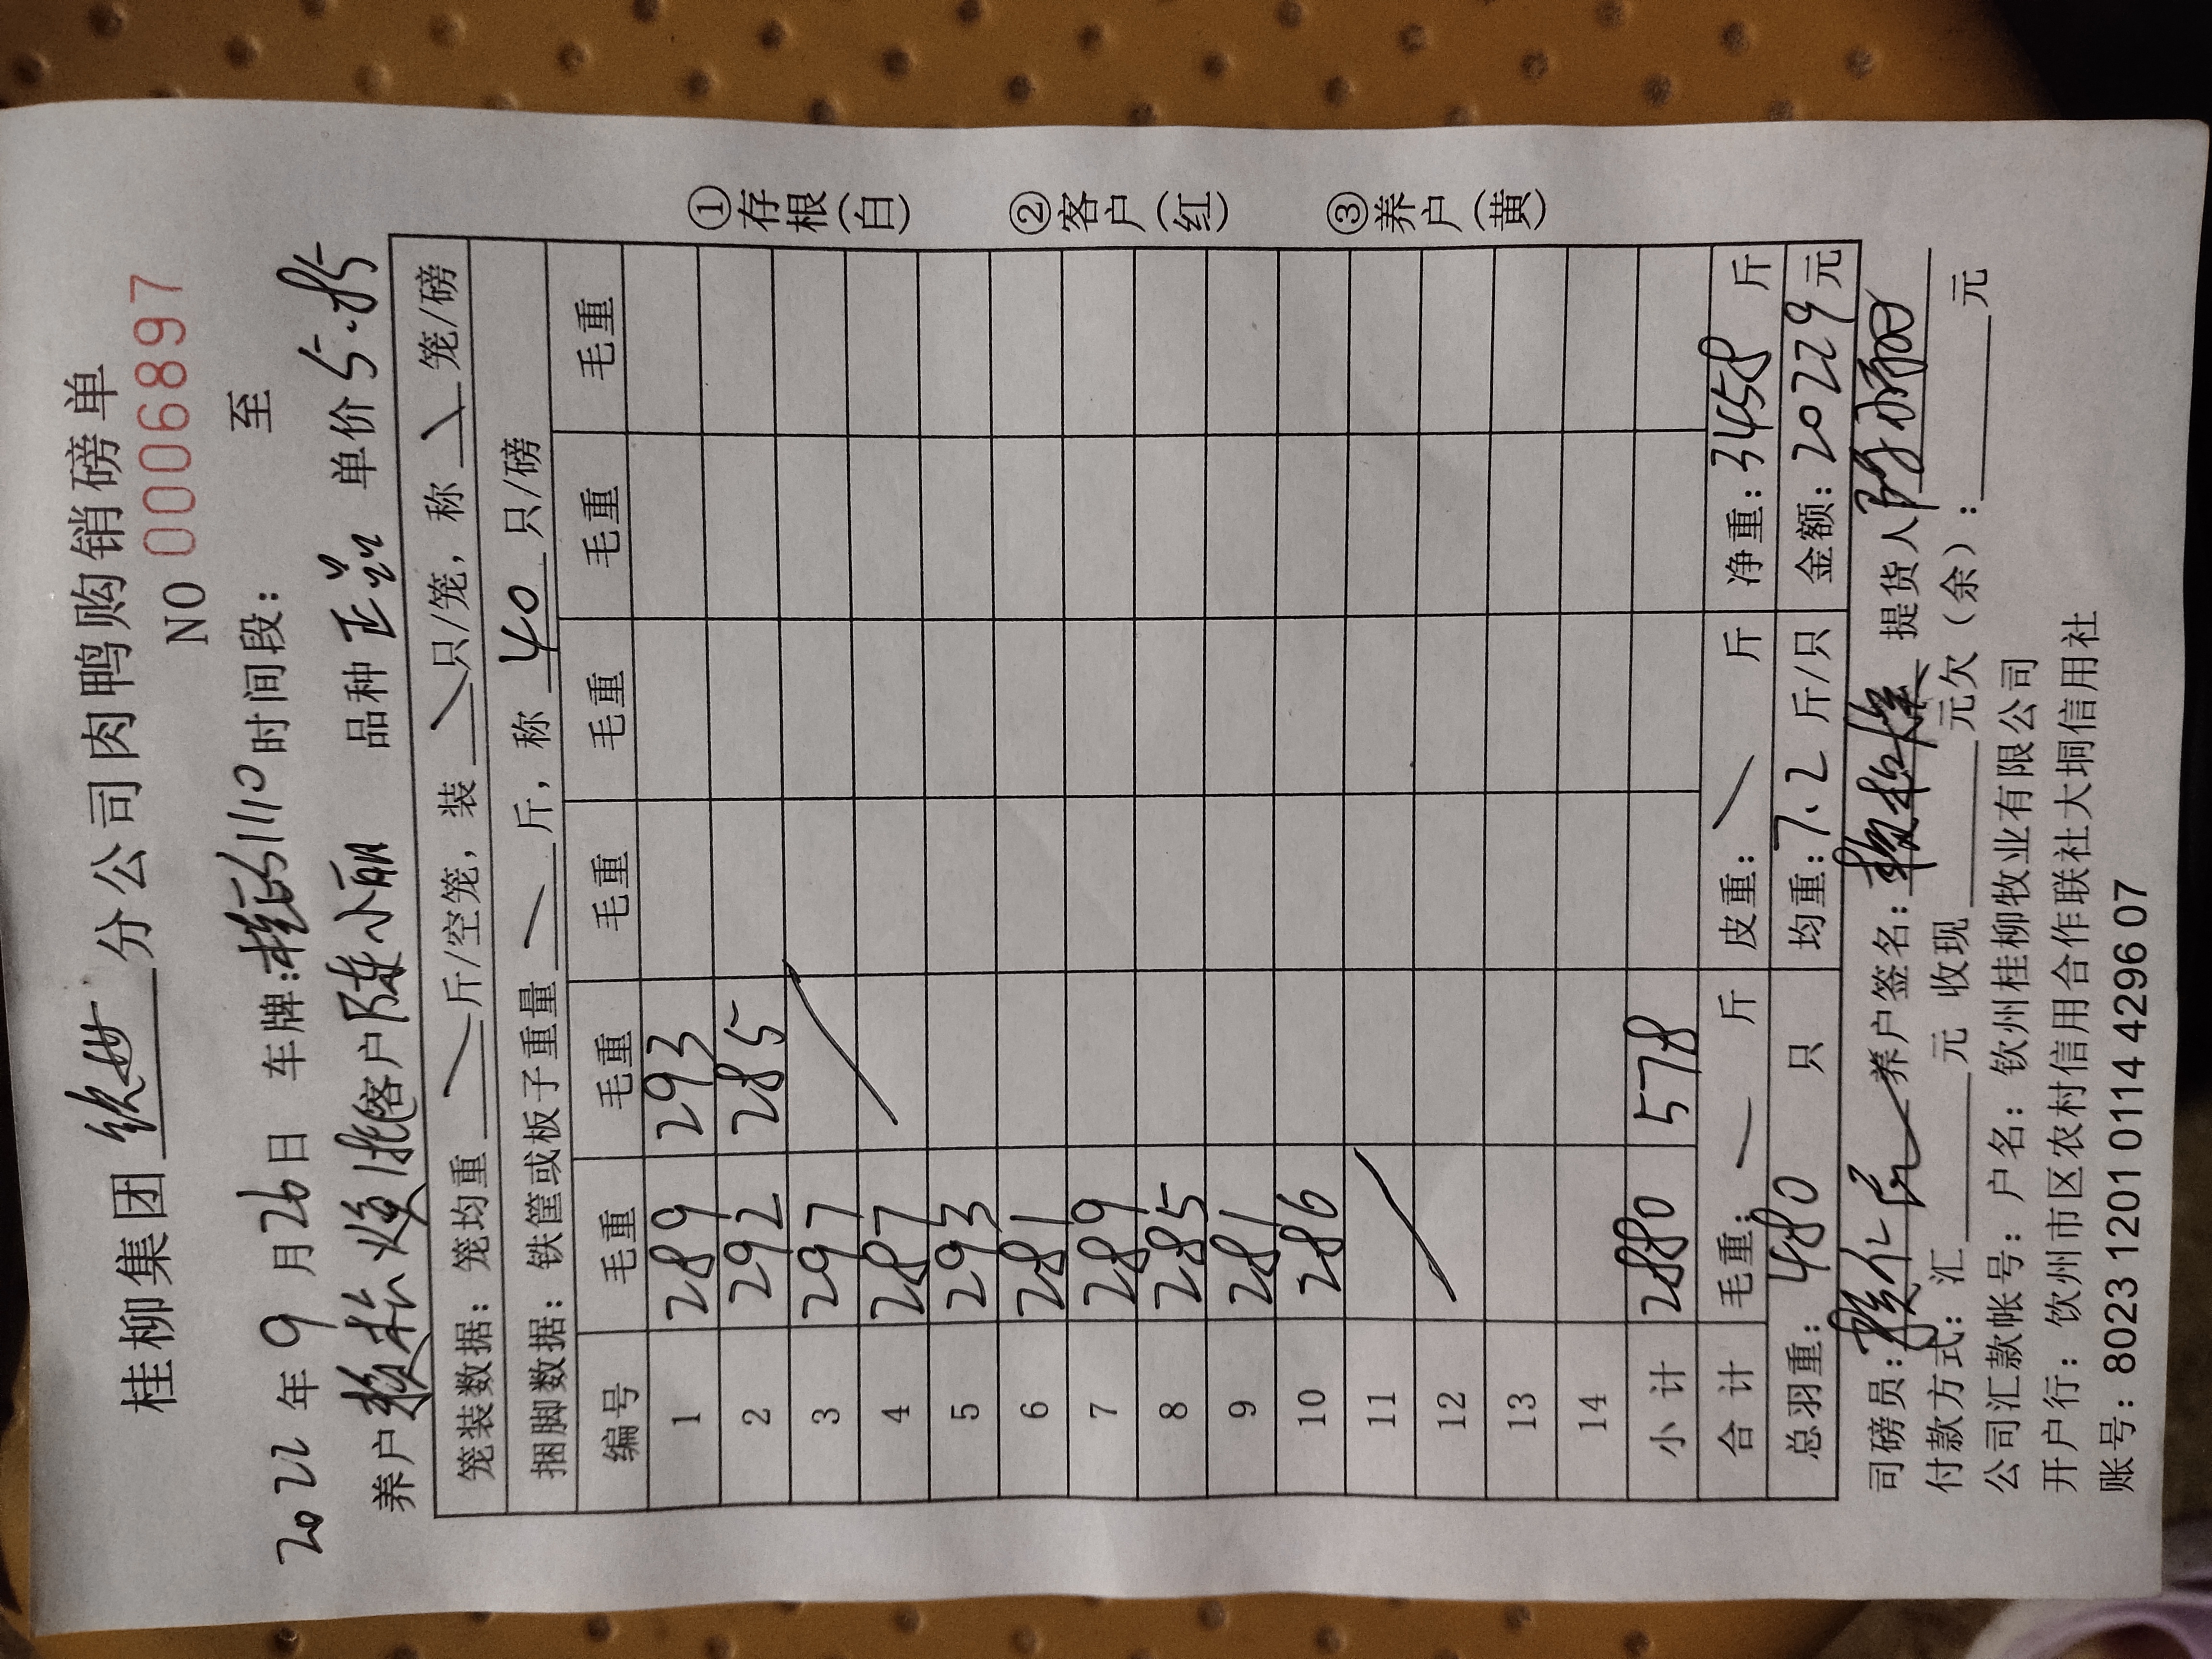 桂柳集团 钦州 分公司肉鸭购销磅单
NO 0006897
2022年9月26日 车牌: 时间段: 至
养户 客户陈小丽 品种 单价5.85
笼装数据：笼均重 斤/空笼，装 只/笼，称 笼/磅
捆脚数据：铁筐或板子重量 斤，称 40 只/磅
编号 毛重 毛重 毛重 毛重 毛重 毛重
1 289 293
2 292 285
3 297
4 287
5 293
6 281
7 289
8 285
9 281
10 286
11
12
13
14
小计 2880 578
合计 毛重： 斤 皮重： 斤 净重：3458 斤
总羽重：480 只 均重：7.2 斤/只 金额：20229元
①存根(白) ②客户(红) ③养户(黄)
司磅员： 养户签名： 提货人
付款方式：汇 元 收现 元欠（余）： 元
公司汇款帐号：户名：钦州桂柳牧业有限公司
开户行：钦州市区农村信用合作联社大垌信用社
账号：8023 1201 0114 4296 07